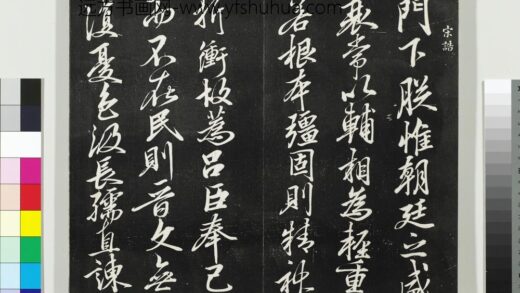 书画网-www.yfshuhua.com
門下朕惟朝廷之盛
衰常以輔相為輕重
若根本彊固則精神
折衝故蒍呂臣奉己
而不在民則晉文無
復憂色汲長孺直諫